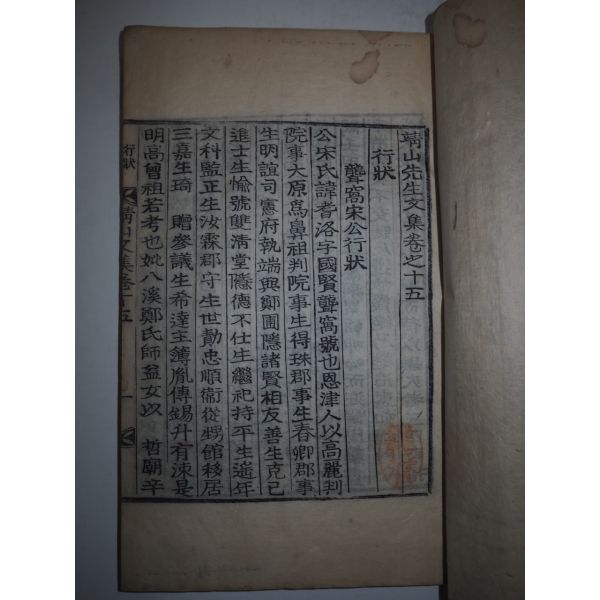 靖山先生文集卷之十五
行狀
聾窩宋公行狀
公宋氏諱耆洛字國賢聾窩號也恩津人以高麗判
院事大原爲鼻祖判院事生得珠郡事生春卿郡事
生明誼司憲府執端與鄭圃隱諸賢相友善生克己
進士生愉號雙淸堂隱德不仕生繼祀持平生遙年
文科監正生汝霖郡守生世勛忠順衛從甥館移居
三嘉生琦 贈參議生希達主簿胤傳錫升有涑是
明高曾祖若考也妣八溪鄭氏師益女以 哲廟辛
行狀
靖山文集卷十五
一